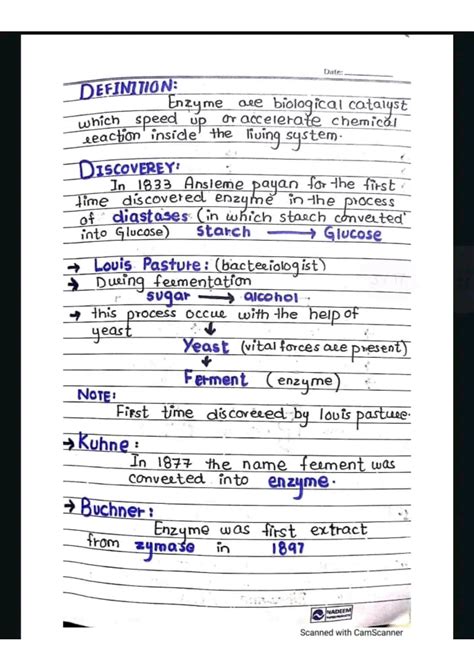 Date:
DEFINITION:
Enzyme are biological catalyst
which speed up or accelerate chemical
reaction inside the living system.
DISCOVEREY:
In 1833 Ansleme payan for the first
time discovered enzyme in the process
of diastases (in which starch converted
into Glucose) starch → Glucose
→ Louis Pasture: (bacteriologist)
→ During fermentation
sugar → alcohol.
→ this process occur with the help of
yeast ↓
Yeast (vital forces are present)
↓
Ferment (enzyme)
NOTE:
First time discovered by louis pasture.
→ Kuhne:
In 1877 the name ferment was
converted into enzyme.
→ Buchner:
Enzyme was first extract
from zymase in 1897
NADEEM
Scanned with CamScanner